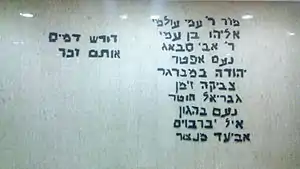 מור ר' עמי עולמי
אליהו בן עמי
ר' אבי סבאג
נעם אפטר
יהודה במברגר
צביקה זימן
גבריאל חוטר
נעם בהגון
איל יברבוים
אביעד מנצור
דורש דמים
אותם זכר